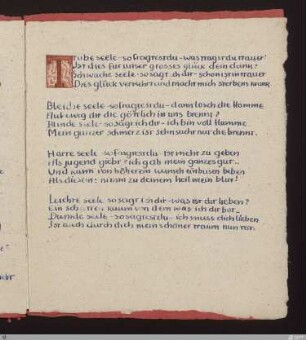 Trübe seele - so fragtest du - was trägst du trauer?
Ist dies für unser grosses glück dein dank?
Schwache seele - so sagt ich dir - schon ist in trauer
Dies glück verkehrt und macht mich sterbens krank.
Bleiche seele - so fragtest du - dann losch die flamme
Auf ewig dir die göttlich in uns brennt?
Blinde seele - so sagt ich dir - ich bin voll flamme
Mein ganzer schmerz ist sehnsucht nur die brennt.
Harte seele - so fragtest du - ist mehr zu geben
Als jugend giebt? ich gab mein ganzes gut..
Und kann von höherem wunsch ein busen beben
Als diesem: nimm zu deinem heil mein blut!
Leichte seele - so sagt ich dir - was ist dir lieben?
Ein schatten kaum von dem was ich dir bot..
Dunkle seele - so sagtest du - ich muss dich lieben
Ist auch durch dich mein schöner traum nun tot.